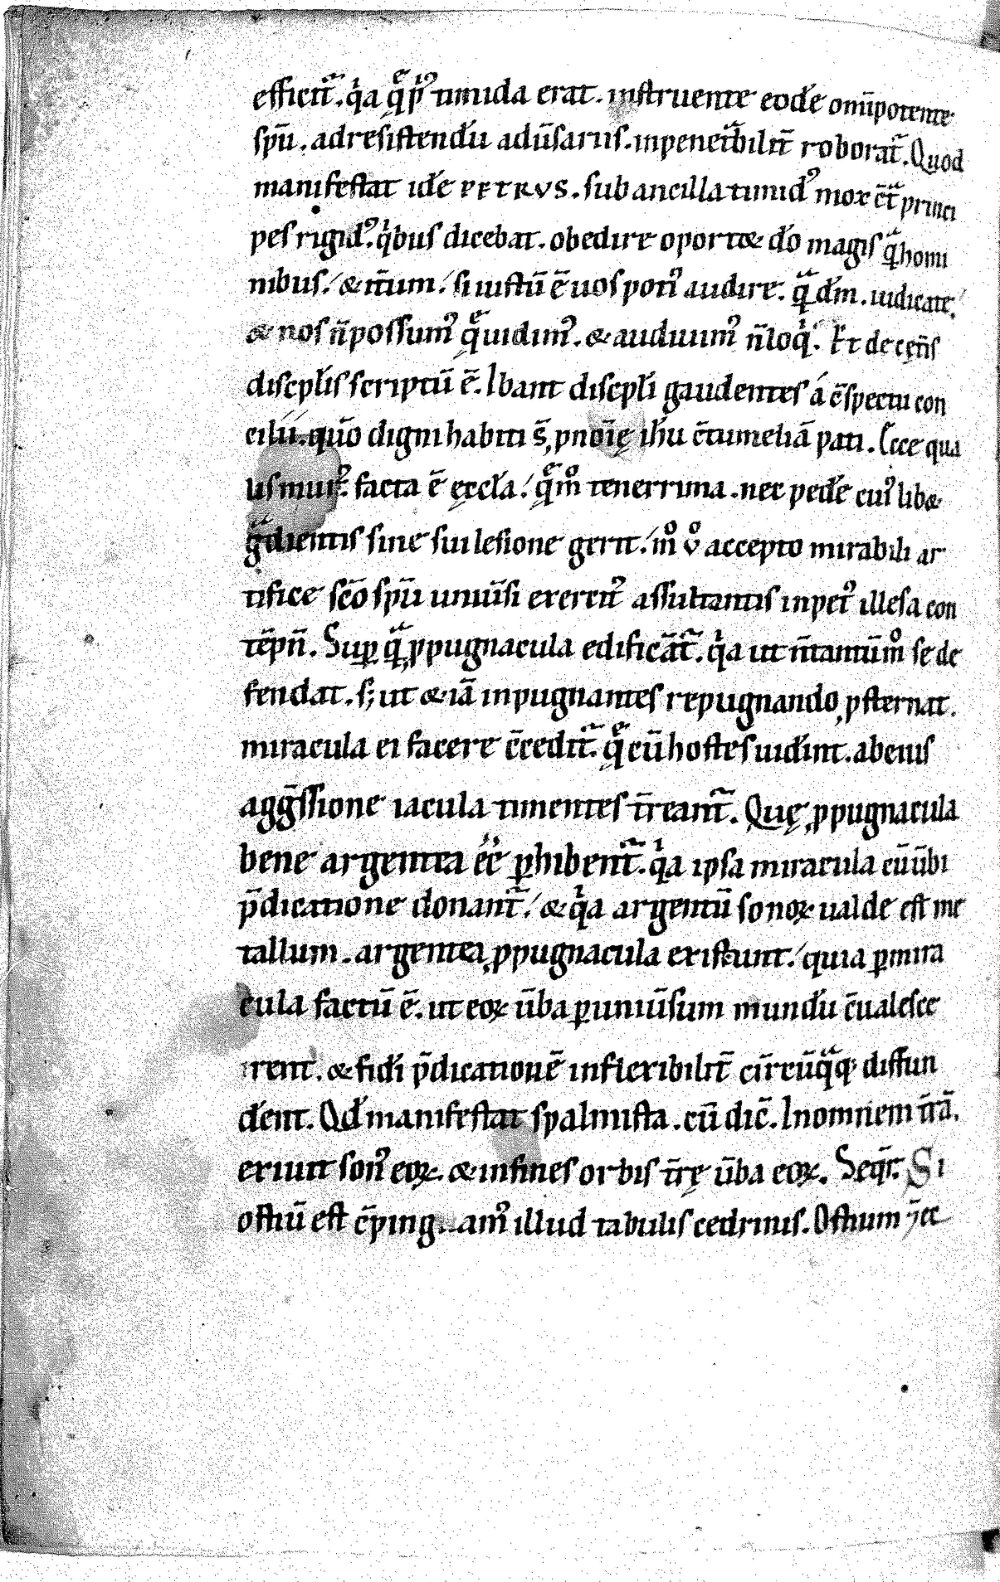 efficit᷑. qͥa q̄ p̾ timida erat. instruente eodē om̄ipotente
sp̄u. ad resistendū adūsariis. inpenet͛bilit̄ roborat᷑. Quod
manifestat idē PETRVS. sub ancilla timidꝰ mox c̄t͛ princi
pes rigidꝰ. qͥbus dicebat. obedire oportet dō magis qͣ̄ homi
nibus. & it̄um. si iustū ē uos potiꝰ audire. qͣ̄ dm̄. iudicate.
& nos n̄ possumꝰ q̄ uidimꝰ. & audiuimꝰ n̄ loqͥ. Et de cęt̄is
discipl̄is scriptū ē. Ibant discipl̄i gaudentes á c̄spectu con
cilii. qūo digni habiti s̄, ꝓ noīe ih̄u c̄tumeliā pati. Ecce qua
us murꝰ. facta ē ęccl̄a. q̄ mͦ tenerrima. nec pedē cuiꝰlib&
g̃dientis sine sui lesione gerit. mͦ ỏ accepto mirabili ar
tifice sc̄o sp̄u uniūsi exercitꝰ assultantis inpetꝰ illesa con
tēpn̄. Suꝑ qͣ̄ ꝓpugnacula edificāt᷑. qͥa ut n̄ tantūmͦ se de
fendat. s; ut &iā inpugnantes repugnando ꝓsternat.
miracula ei facere c̄cedit᷑. q̄ cū hostes uidint. ab eius
agg̃ssione iacula timentes t̄reant᷑. Quę ꝓpugnacula
bene argentea ēē ꝑhibent᷑. qͥa ipsa miracula cū ūbi
p̄dicatione donant᷑. & qͥa argentū sonoꝝ ualde est me
tallum. argentea ꝓpugnacula existunt. quia ꝑ mira
cula factū ē. ut eoꝝ ūba ꝑ uniūsum mundū c̄ualesce
rent. & fidī p̄dicationē inflexibilit̄ circ̄ūqͣ̄q; diffun
derent. Qd̄ manifestat spalmista. cū dic̄. In omnem t̄rā.
exiuit sonꝰ eoꝝ. & in fines orbis t̄rę ūba eoꝝ. Seqt᷑. Si
ostiū est c̄ping..amꝰ illud tabulis cedrinis. Ostium